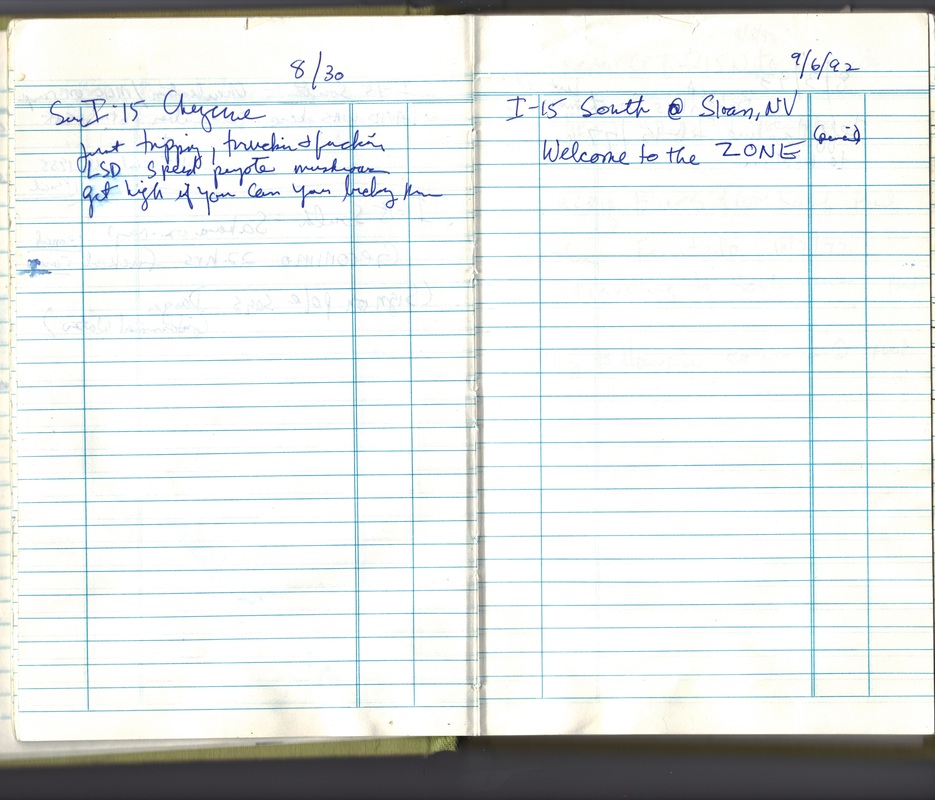 8/30
I-15 Cheyenne
Just tripping, truckin & fuckin
LSD Speed peyote mushroom
get high if you can you
9/6/92
I-15 South @ Sloan, NV
Welcome to the ZONE